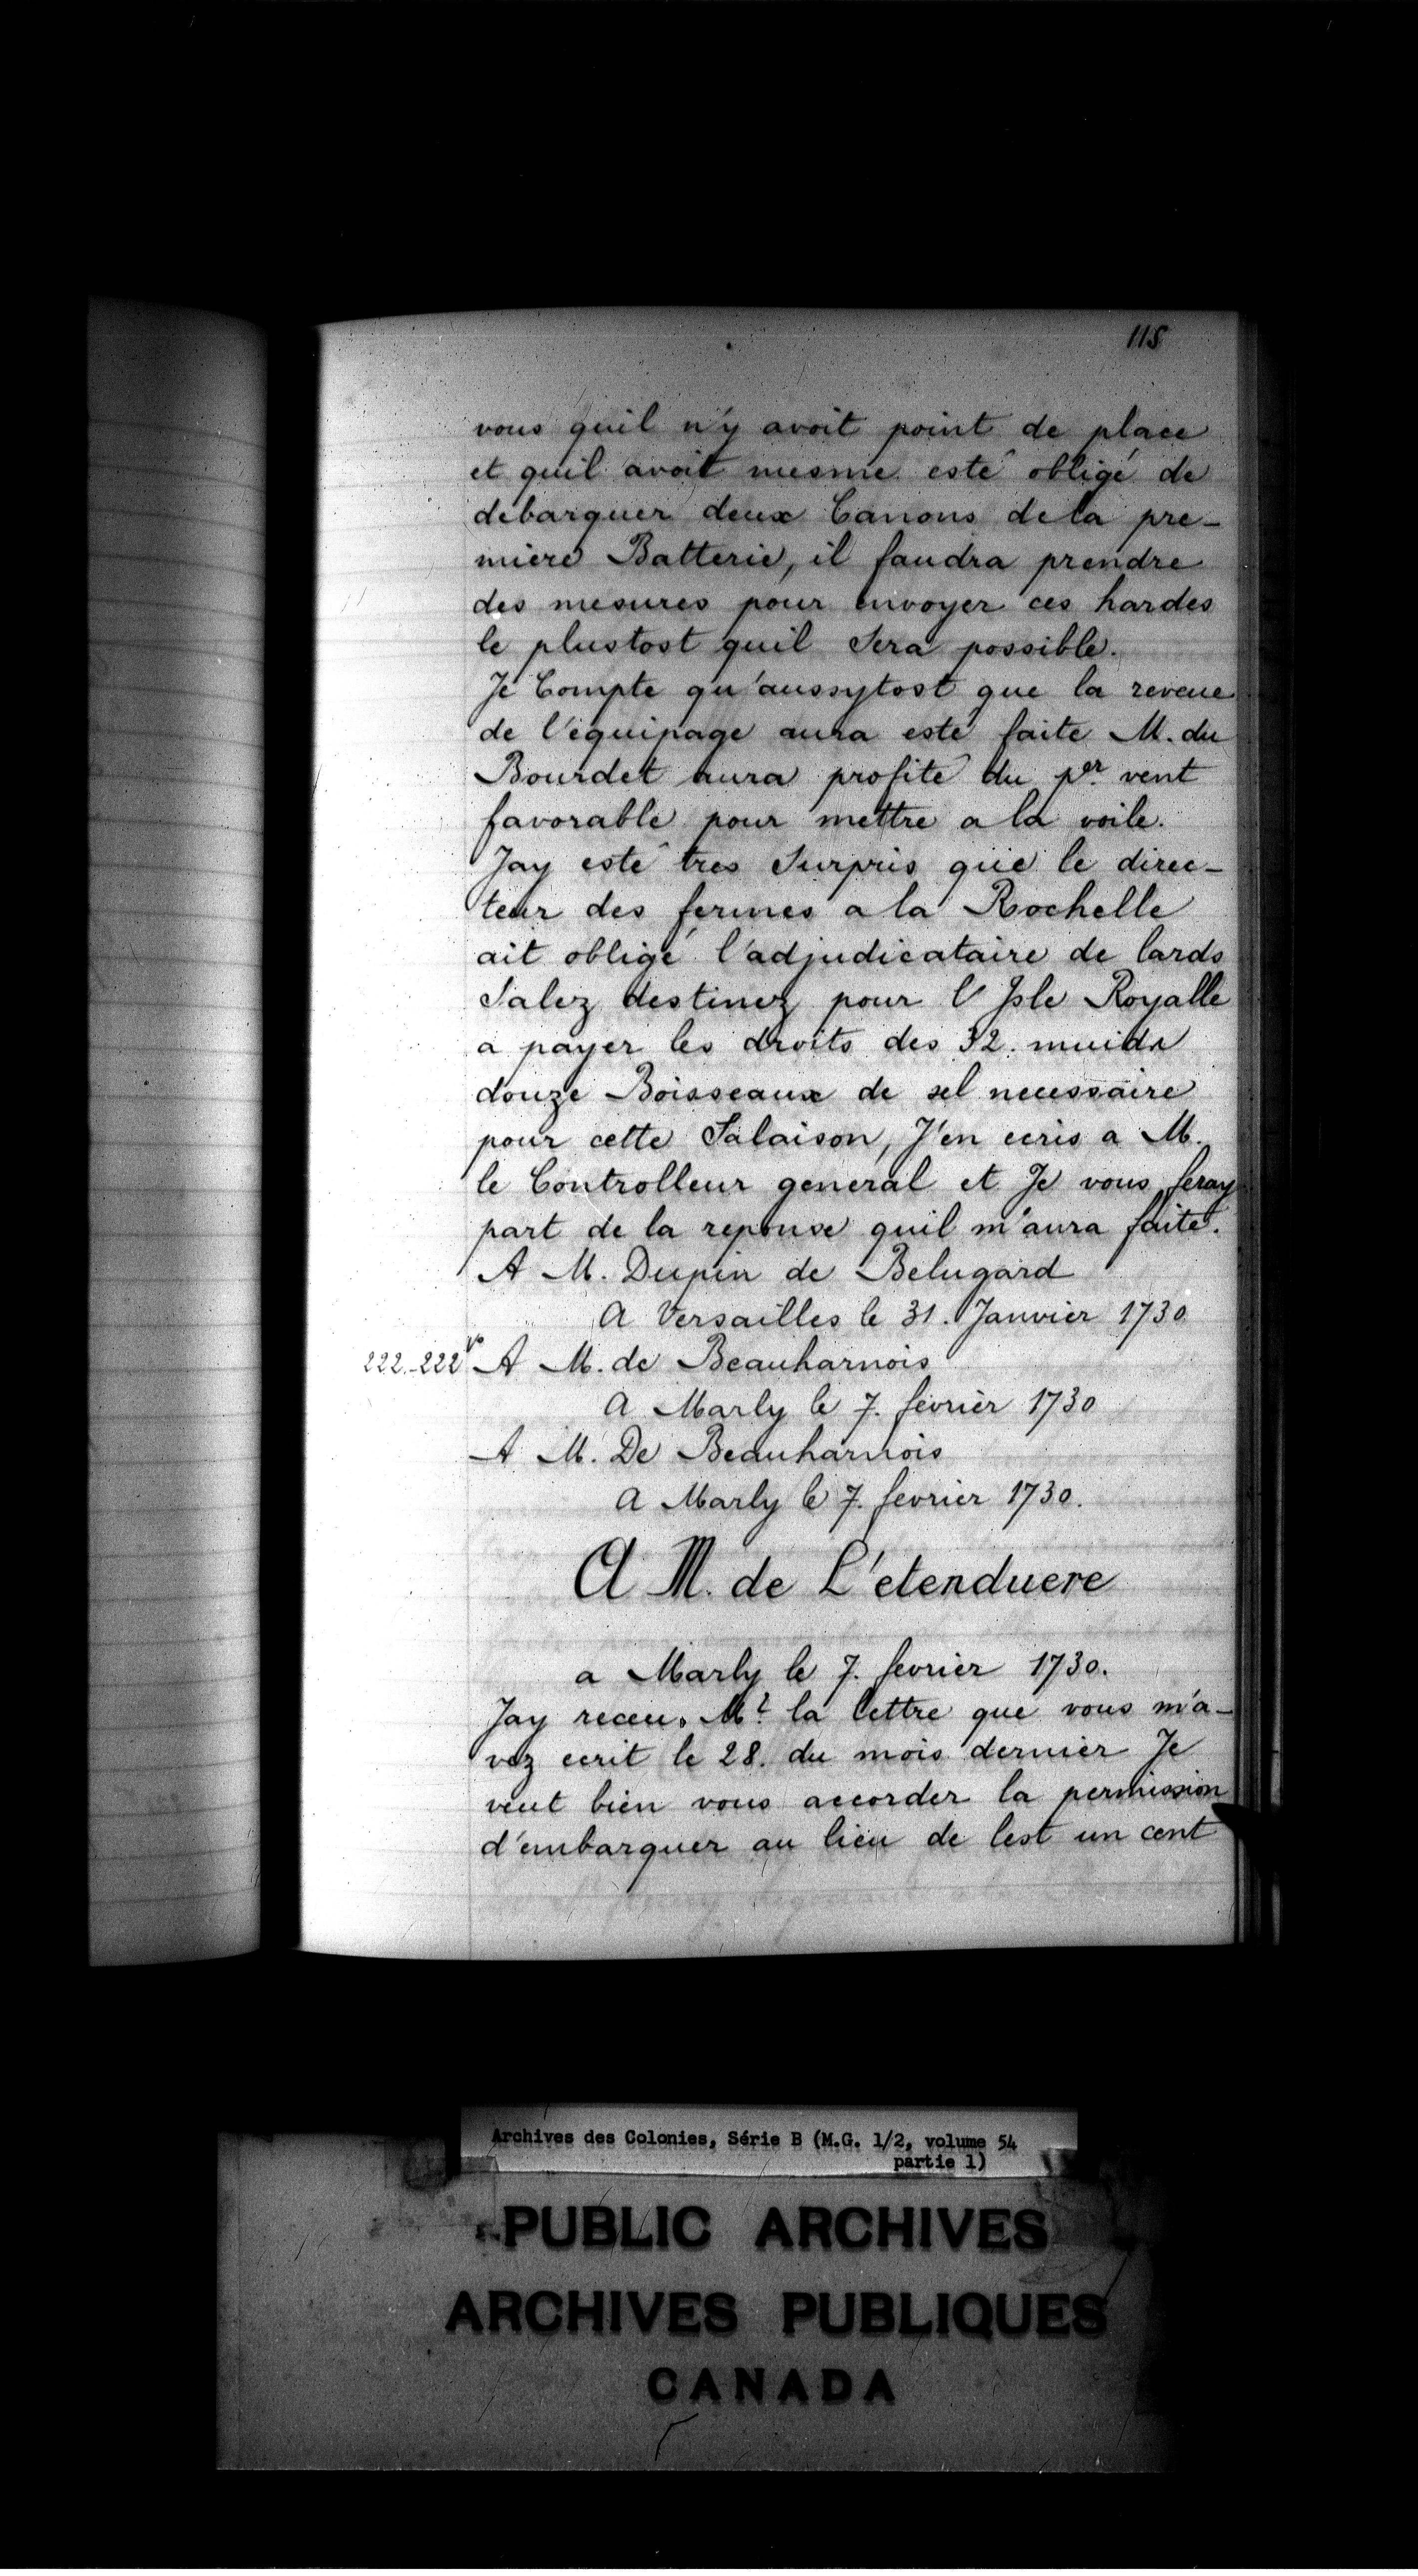 115
vous quil n'y avoit point de place
et quil avoit mesme esté obligé de
debarquer deux Canons de la pre-
miere Batterie, il faudra prendre
des mesures pour envoyer ces hardes
le plustost quil Sera possible.
Je Compte qu'aussytost que la reveue
de l'équipage aura esté faite M. du
Bourdet aura profité du per. vent
favorable pour mettre a la voile.
Jay esté tres Surpris que le direc-
teur des fermes a la Rochelle
ait obligé l'adjudicataire de lards
Salez destinez pour l'Isle Royalle
a payer les droits des 32. muids
douze Boisseaux de sel necessaire
pour cette Salaison, J'en ecris a M.
le Controlleur general et Je vous feray
part de la reponse quil m'aura faite.
A M. Dupin de Belugard
A Versailles le 31. Janvier 1730
222-222 vo A M. de Beauharnois
A Marly le 7. fevrier 1730
A M. De Beauharnois
A Marly le 7. fevrier 1730.
A M. de L'etenduere
a Marly le 7. fevrier 1730.
Jay receu, Mr. la lettre que vous m'a-
vez ecrit le 28. du mois dernier Je
veut bien vous accorder la permission
d'embarquer au lieu de lest un cent
Archives des Colonies, Série B (M.G. 1/2, volume 54
partie 1)
PUBLIC ARCHIVES
ARCHIVES PUBLIQUES
CANADA